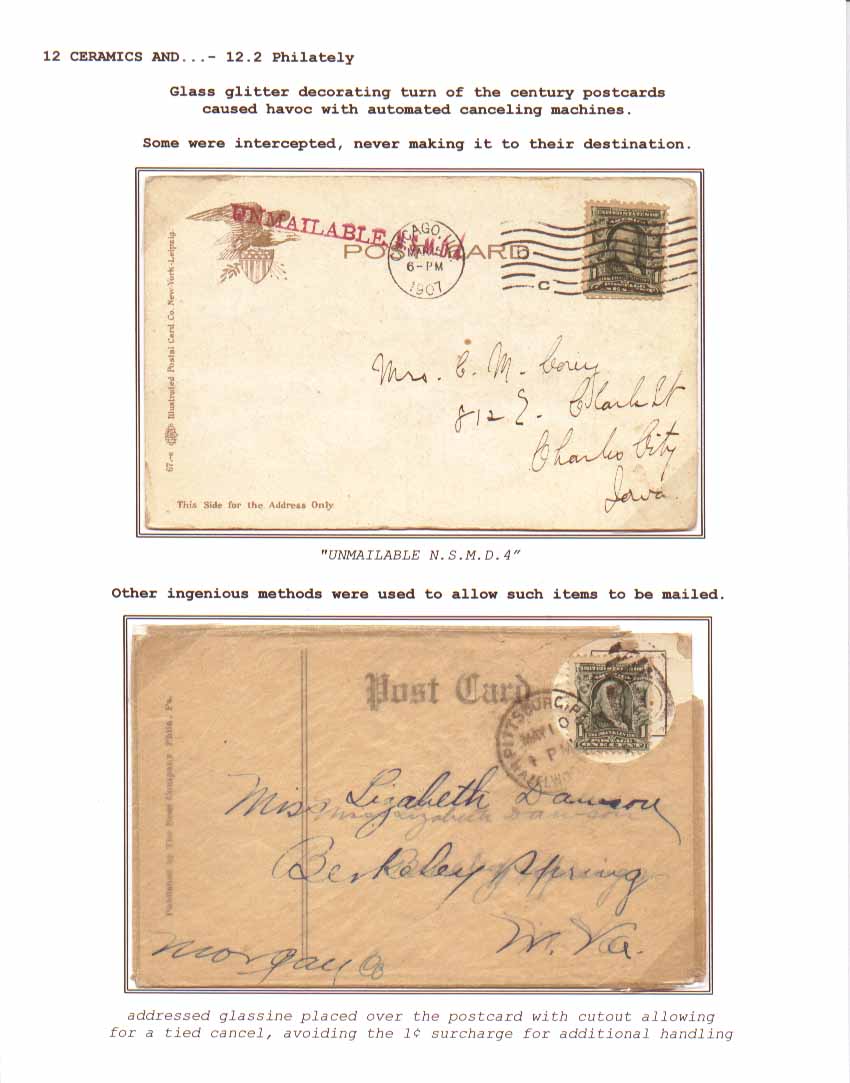 12 CERAMICS AND...- 12.2 Philately
Glass glitter decorating turn of the century postcards
caused havoc with automated canceling machines.
Some were intercepted, never making it to their destination.
UNMAILABLE N.S.M.D.4
POST CARD
CHICAGO, ILL.
MAR
6-PM
1907
C
1 1
POSTAGE
ONE CENT
Illustrated Postal Card Co. New-York-Leipzig.
67.-
Mrs. C. M. Corey
812 E. Clark St
Charles City
Iowa
This Side for the Address Only
"UNMAILABLE N.S.M.D.4"
Other ingenious methods were used to allow such items to be mailed.
Post Card
PITTSBURG, PA.
MAY 10
PM
HAZELWOOD
1 1
POSTAGE
ONE CENT
Published by The Rose Company Phila., Pa.
Miss Lizabeth Dawson
Miss Lizabeth Dawson
Berkeley Spring
W. Va.
Morgan Co
addressed glassine placed over the postcard with cutout allowing
for a tied cancel, avoiding the 1¢ surcharge for additional handling